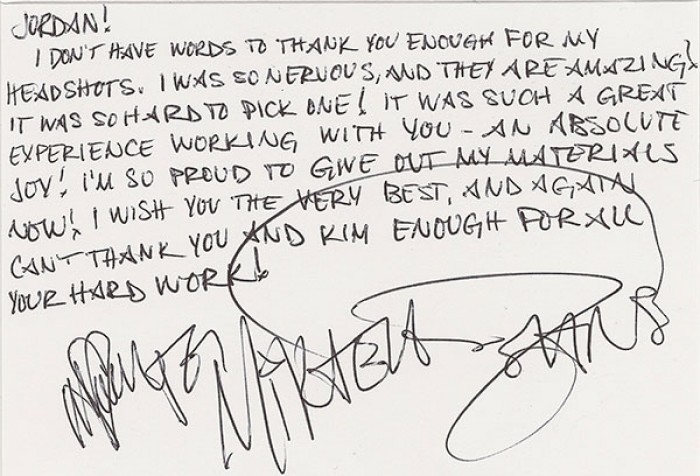 JORDAN!
I DON'T HAVE WORDS TO THANK YOU ENOUGH FOR MY
HEADSHOTS. I WAS SO NERVOUS, AND THEY ARE AMAZING!
IT WAS SO HARD TO PICK ONE! IT WAS SUCH A GREAT
EXPERIENCE WORKING WITH YOU - AN ABSOLUTE
JOY! I'M SO PROUD TO GIVE OUT MY MATERIALS
NOW! I WISH YOU THE VERY BEST, AND AGAIN
CAN'T THANK YOU AND KIM ENOUGH FOR ALL
YOUR HARD WORK!